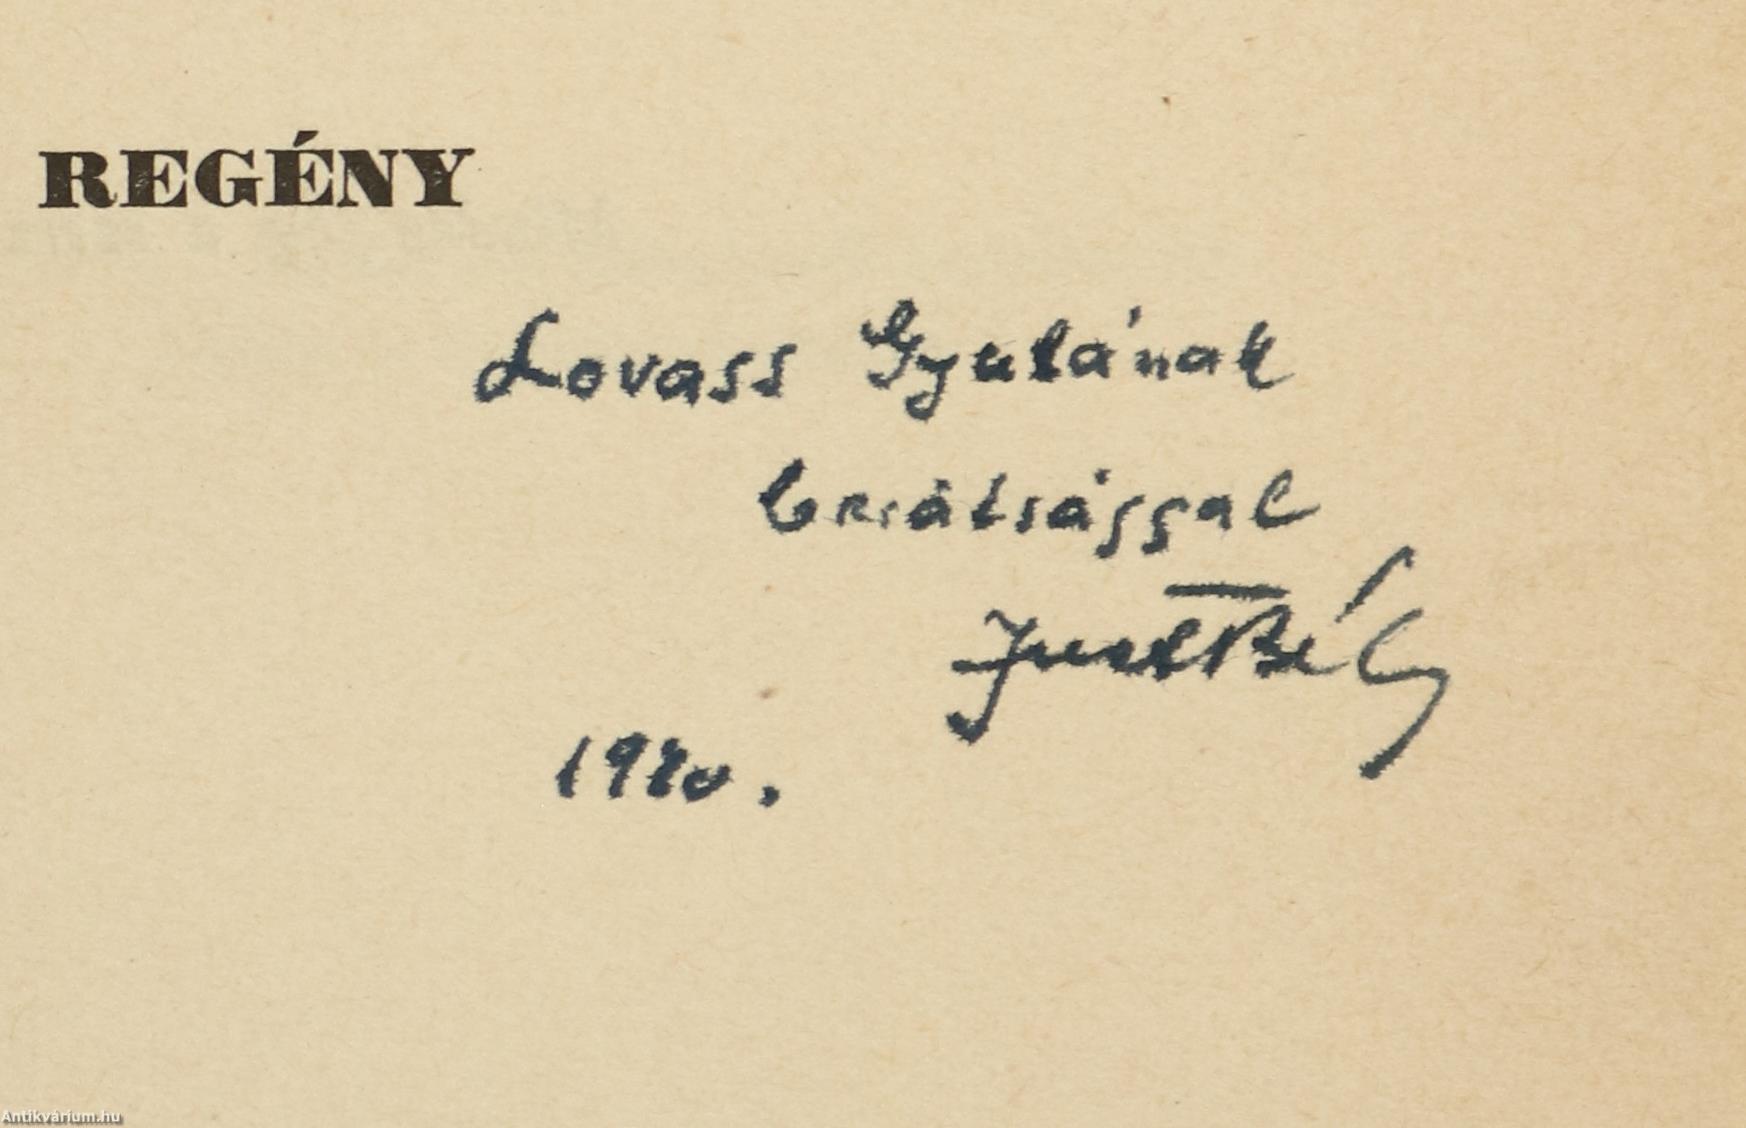 REGÉNY
Lovass Gyulának
barátsággal
Just Béla
1940.
Antikvárium.hu